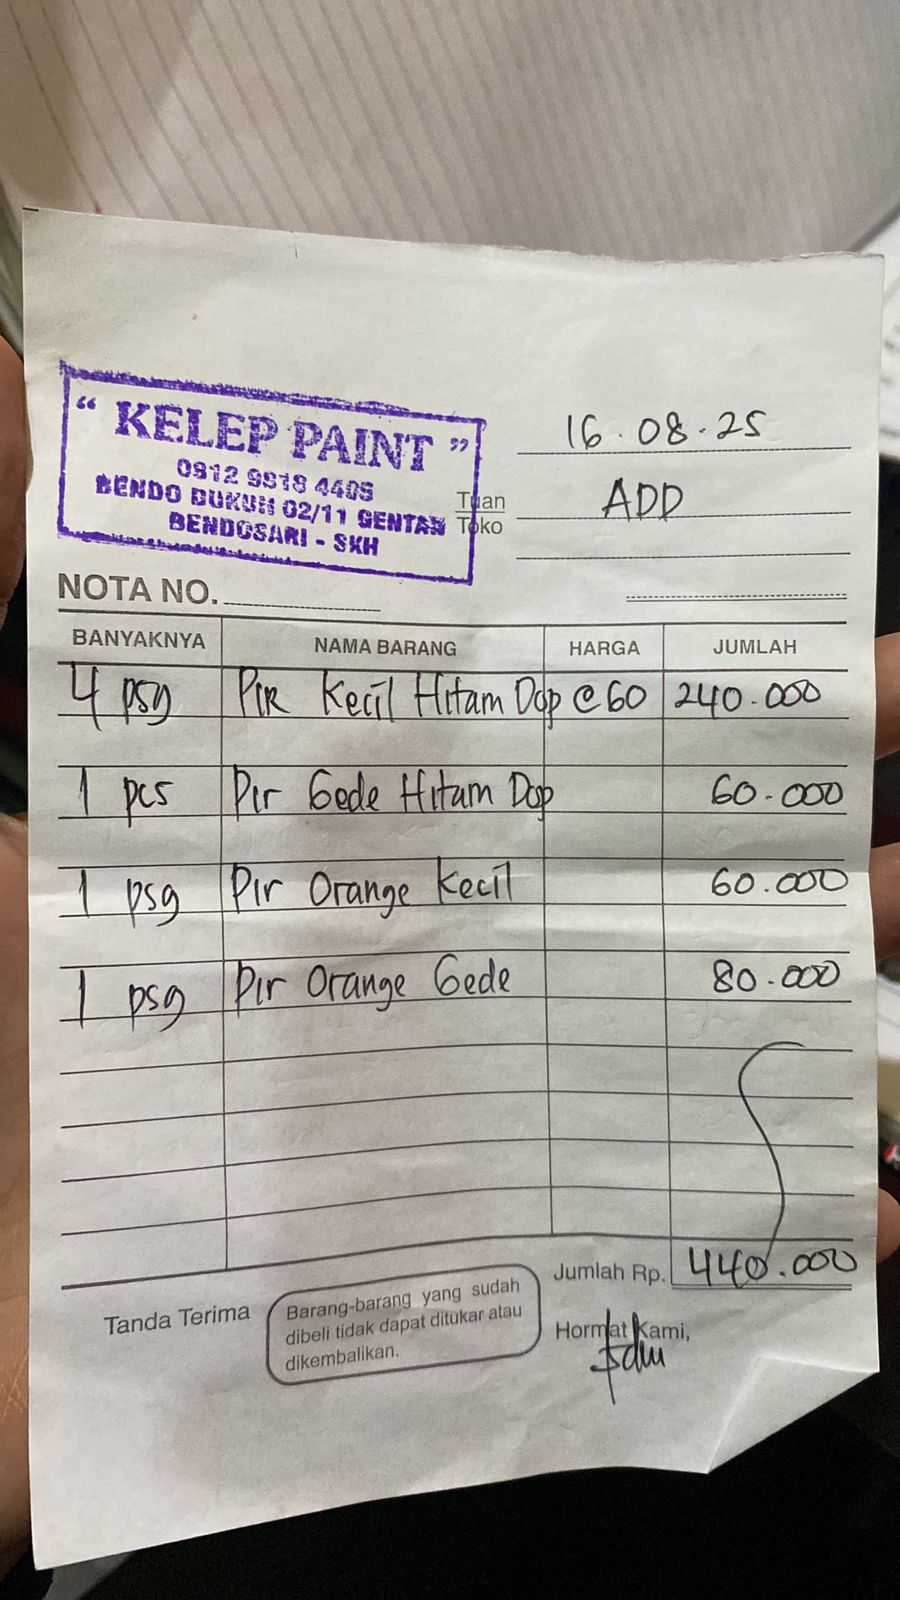 " KELEP PAINT "
0812 9818 4405
BENDO DUKUH 02/11 GENTAN
BENDOSARI - SKH
16.08.25
Tuan
Toko
ADD
NOTA NO.
BANYAKNYA NAMA BARANG HARGA JUMLAH
4 psg PIR Kecil Hitam Dop @60 240.000
1 pcs Pir Gede Hitam Dop 60.000
1 psg Pir Orange Kecil 60.000
1 psg Pir Orange Gede 80.000
Jumlah Rp. 440.000
Tanda Terima
Barang-barang yang sudah
dibeli tidak dapat ditukar atau
dikembalikan.
Hormat Kami,